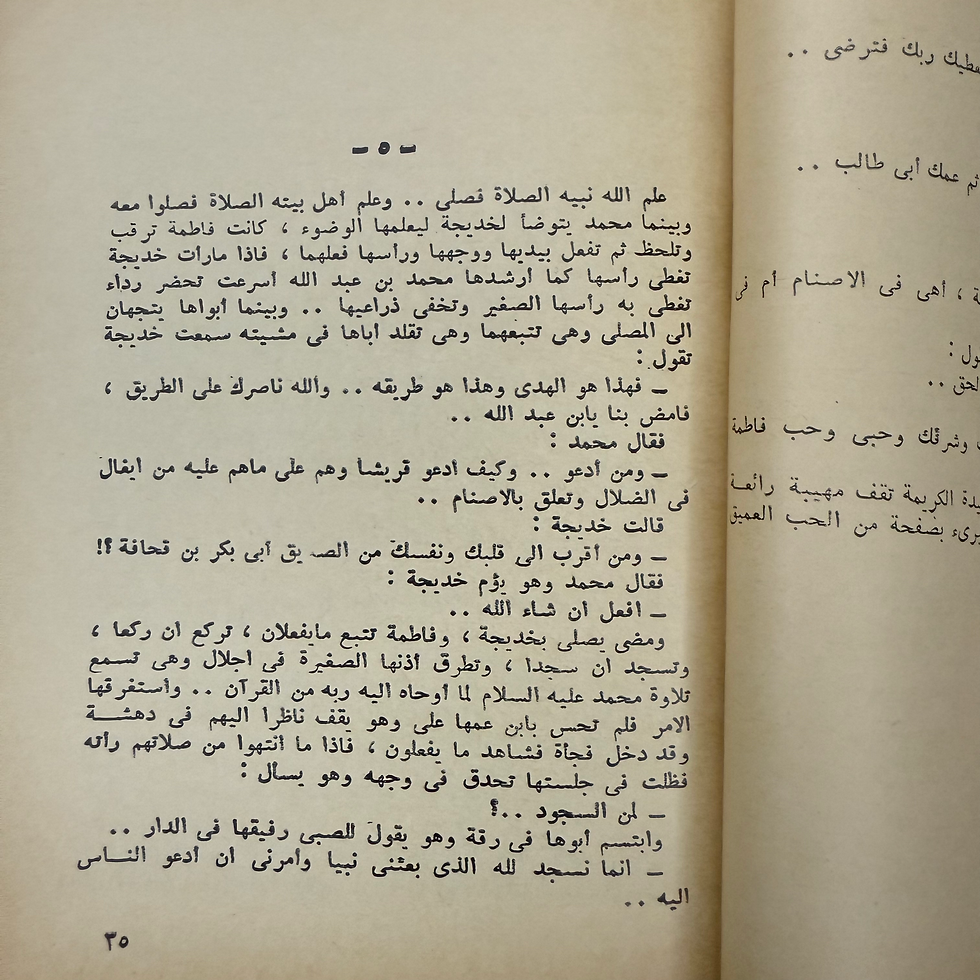 - ٥ -
علم الله نبيه الصلاة فصلى .. وعلم أهل بيته الصلاة فصلوا معه
وبينما محمد يتوضأ لخديجة ليعلمها الوضوء ، كانت فاطمة ترقب
وتلحظ ثم تفعل بيديها ووجهها ورأسها فعلهما ، فاذا مارأت خديجة
تغطى رأسها كما أرشدها محمد بن عبد الله أسرعت تحضر رداء
تغطى به رأسها الصغير وتخفى ذراعيها .. وبينما أبواها يتجهان
الى المصلى وهى تتبعهما وهى تقلد أباها فى مشيته سمعت خديجة
تقول :
ـ فهذا هو الهدى وهذا هو طريقه .. والله ناصرك على الطريق ،
فامض بنا يابن عبد الله ..
فقال محمد :
ـ ومن أدعو .. وكيف أدعو قريشا وهم على ماهم عليه من ايغال
فى الضلال وتعلق بالاصنام ..
قالت خديجة :
ـ ومن أقرب الى قلبك ونفسك من الصديق أبى بكر بن قحافة ؟!
فقال محمد وهو يؤم خديجة :
ـ افعل ان شاء الله ..
ومضى يصلى بخديجة ، وفاطمة تتبع مايفعلان ، تركع ان ركعا ،
وتسجد ان سجدا ، وتطرق أذنها الصغيرة فى اجلال وهى تسمع
تلاوة محمد عليه السلام لما أوحاه اليه ربه من القرآن .. واستغرقها
الامر فلم تحس بابن عمها على وهو يقف ناظرا اليهم فى دهشة
وقد دخل فجأة فشاهد ما يفعلون ، فاذا ما انتهوا من صلاتهم رأته
فظلت فى جلستها تحدق فى وجهه وهو يسأل :
ـ لمن السجود ..؟
وابتسم أبوها فى رقة وهو يقول للصبى رفيقها فى الدار ..
ـ انما نسجد لله الذى بعثنى نبيا وأمرنى أن أدعو الناس
اليه ..
٣٥
ربك فترضى ..
ثم عمك أبى طالب ..
، أهى فى الاصنام أم فى
الحق ..
وشرفك وحبى وحب فاطمة
الكريمة تقف مهيبة رائعة
بصفحة من الحب العميق